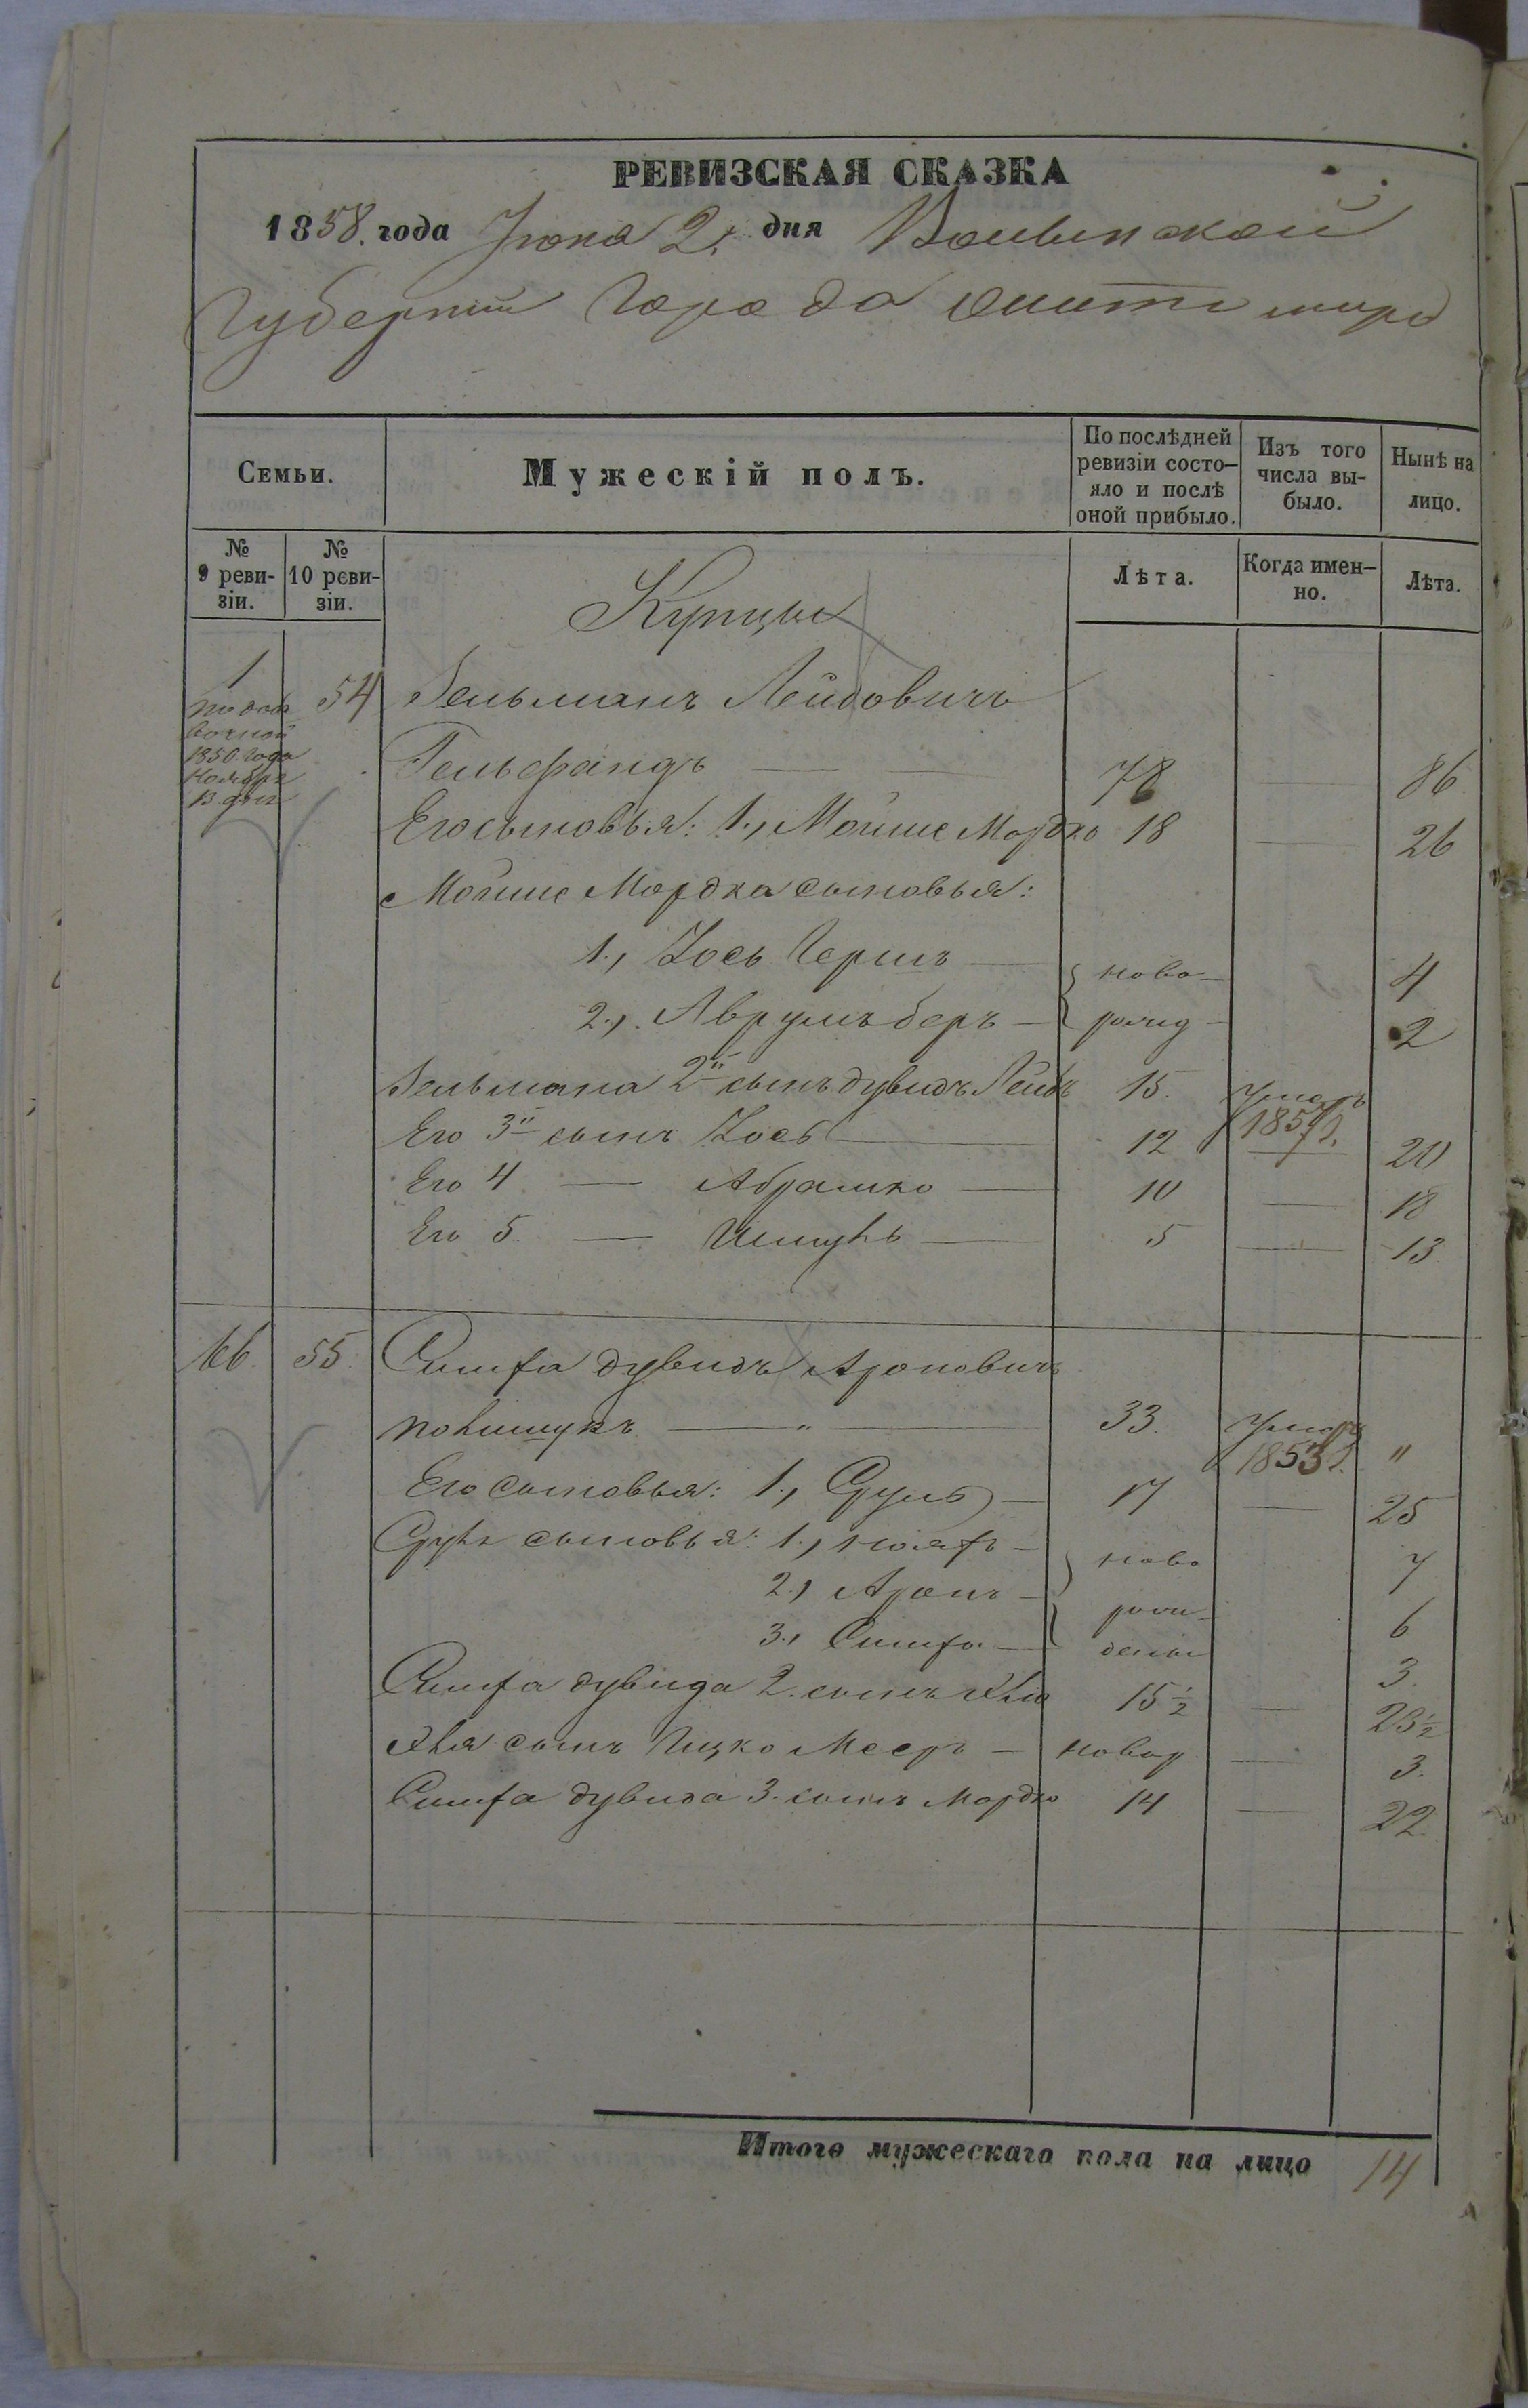 РЕВИЗСКАЯ СКАЗКА
1858. года Іюня 2. дня Волынской
Губерніи города Житоміра
Семьи.
Мужескій полъ.
По послѣдней ревизіи состо-яло и послѣ оной прибыло.
Изъ того числа вы-было.
Нынѣ на лицо.
№ 9 реви-зіи.
№ 10 реви-зіи.
Лѣта.
Когда имен-но.
Лѣта.
Купцы
1 54 Зельманъ Лейбовичъ
по
1850 года
Ноября
13 дня
Гельфандъ — — 78 — 86
Его сыновья: 1., Мойше Мордко 18 — 26
Мойше Мордка сыновья:
1., Іось Гершъ — ново- 4
2., Аврумъ беръ — рожд - 2
Зельмана 2й сынъ дувидъ Лейбъ 15. Умеръ 1857 г.
Его 3й сынъ Іось — 12 — 20
Его 4 — Абрашко — 10 — 18
Его 5 — Шмуль — 5 — 13
166. 55. Симха дувидъ Ароновичъ
полищукъ — " — 33. Умеръ 1853 г. "
Его сыновья: 1., Сруль — 17 — 25
Сруля сыновья: 1., — ново 7
2., Аронъ — рож- 6
3., Симха — дены 3.
Симха дувида 2. сынъ 15 ½ — 23 ½
сынъ Ицко Мееръ — новор — 3.
Симха дувида 3. сынъ Мордко 14 — 22.
Итого мужескаго пола на лицо 14